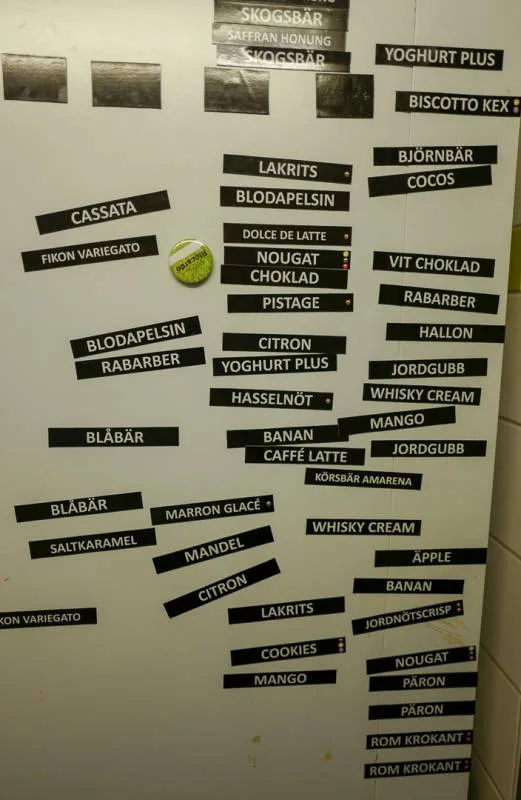 SKOGSBÄR
SAFFRAN HONUNG
SKOGSBÄR
YOGHURT PLUS
BISCOTTO KEX
LAKRITS
BJÖRNBÄR
COCOS
BLODAPELSIN
CASSATA
FIKON VARIEGATO
Riccardo
DOLCE DE LATTE
NOUGAT
CHOKLAD
VIT CHOKLAD
PISTAGE
RABARBER
HALLON
BLODAPELSIN
RABARBER
CITRON
YOGHURT PLUS
JORDGUBB
HASSELNÖT
WHISKY CREAM
MANGO
BLÅBÄR
BANAN
CAFFÉ LATTE
JORDGUBB
KÖRSBÄR AMARENA
BLÅBÄR
MARRON GLACÉ
WHISKY CREAM
SALTKARAMEL
MANDEL
ÄPPLE
CITRON
BANAN
KON VARIEGATO
LAKRITS
JORDNÖTSCRISP
COOKIES
NOUGAT
MANGO
PÄRON
PÄRON
ROM KROKANT
ROM KROKANT